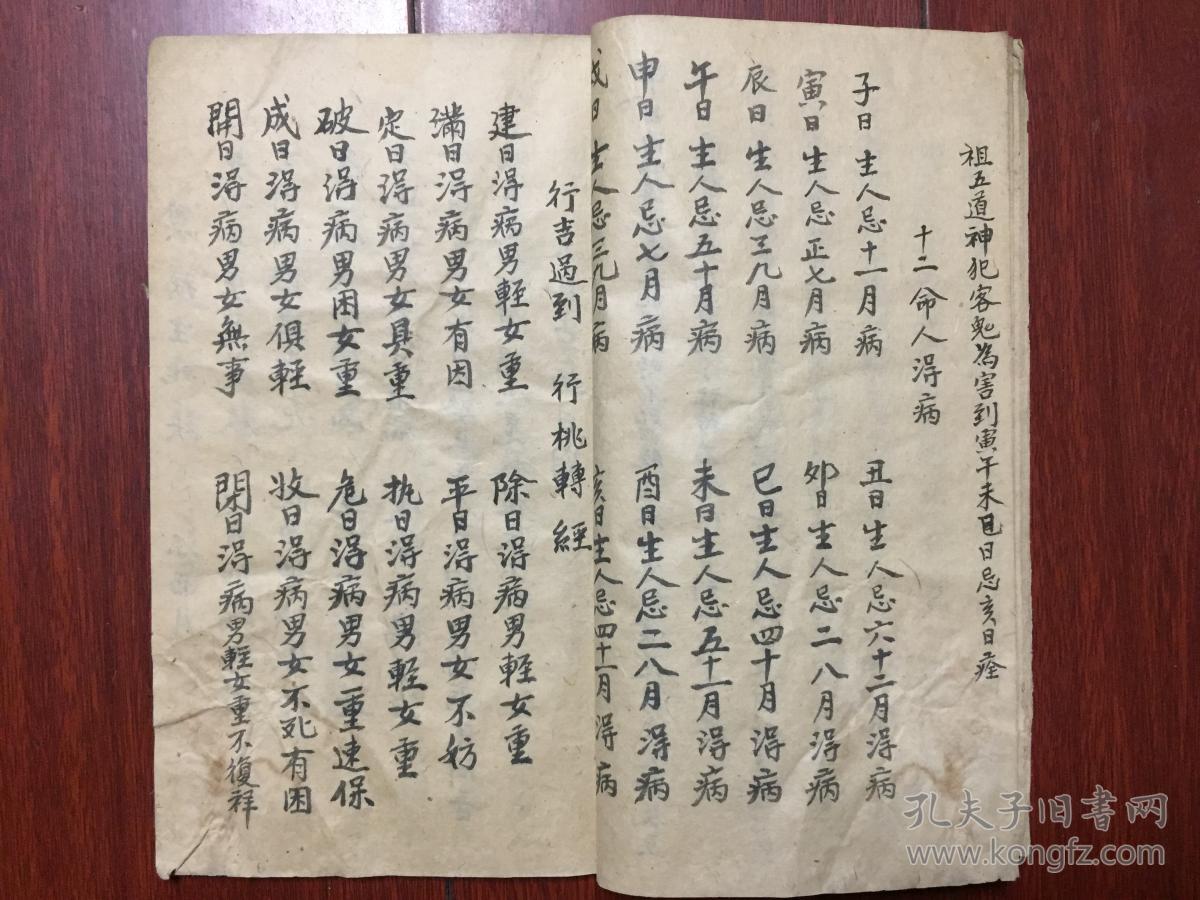 祖五道神犯客鬼為害到寅午未日忌亥日痊
十二命人淂病
子日生人忌十一月病 丑日生人忌六十二月淂病
寅日生人忌正七月病 卯日生人忌二八月淂病
辰日生人忌三九月病 巳日生人忌四十月淂病
午日生人忌五十月病 未日生人忌五十一月淂病
申日生人忌七月病 酉日生人忌二八月淂病
戍日生人忌三九月病 亥日生人忌四十一月淂病
行吉過到 行桃轉經
建日淂病男輕女重 除日淂病男輕女重
满日淂病男女有因 平日淂病男女不妨
定日淂病男女具重 执日淂病男輕女重
破日淂病男困女重 危日淂病男女重速保
成日淂病男女俱輕 收日淂病男女不死有困
開日淂病男女無事 閉日淂病男輕女重不復祥
孔夫子旧书网
www.kongfz.com